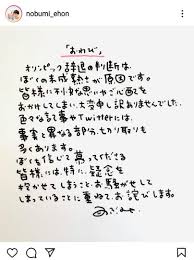 nobumi_ehon
「おわび」
オリンピック辞退の判断は、
ぼくの未成熟さが原因です。
皆様に不快な思いやご心配を
おかけしてしまい、大変申し訳ありませんでした。
色々な記事やTwitterには、
事実と異なる部分、切り取りも
多くあります。
ぼくを信じて慕ってくださる
皆様には、特に、疑念を
抱かせてしまうこと、お騒がせして
しまっていることに重ねて、お詫びします。
のぶみ